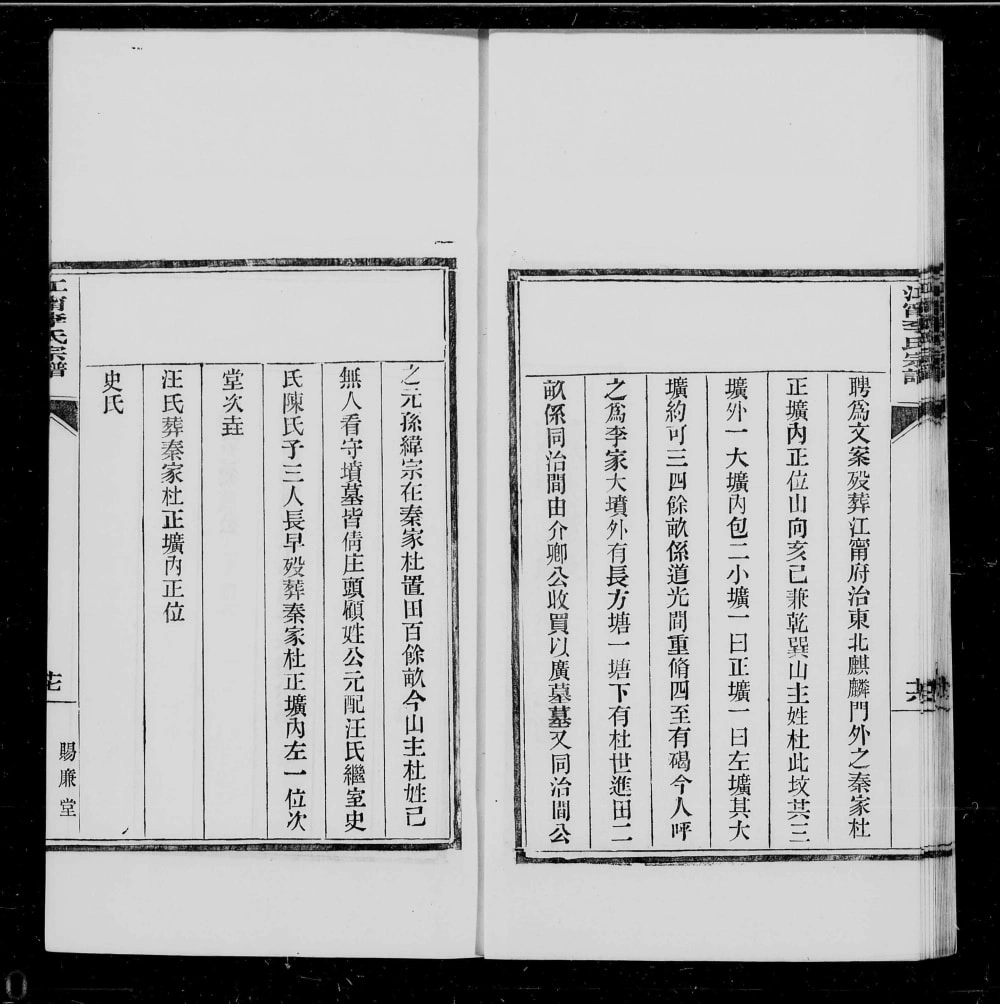 江甯李氏宗譜
聘爲文案歿葬江甯府治東北麒麟門外之秦家杜
正壙內正位山向亥己兼乾巽山主姓杜此坟共三
壙外一大壙內包二小壙一曰正壙一曰左壙其大
壙約可三四餘畝係道光間重脩四至有碣今人呼
之爲李家大墳外有長方塘一塘下有杜世進田二
畝係同治間由介卿公收買以廣墓墓又同治間公
之元孫緯宗在秦家杜置田百餘畝今山主杜姓己
無人看守墳墓皆倩庄頭顧姓公元配汪氏繼室史
氏陳氏子三人長早歿葬秦家杜正壙內左一位次
堂次垚
汪氏葬秦家杜正壙內正位
史氏
江甯李氏宗譜
賜廉堂